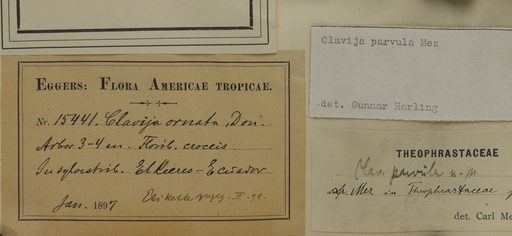 EGGERS: FLORA AMERICAE TROPICAE.
Nr. 15441. Clavija ornata, Don.
Arbor 3-4 m. Florib. croceis
In sylvestrib. El Recreo - Ecuador
Jan. 1897
Clavija parvula Mez
det. Gunnar Harling
THEOPHRASTACEAE
Clav. parvula n. sp.
Mez in Theophrastaceae
det. Carl Me